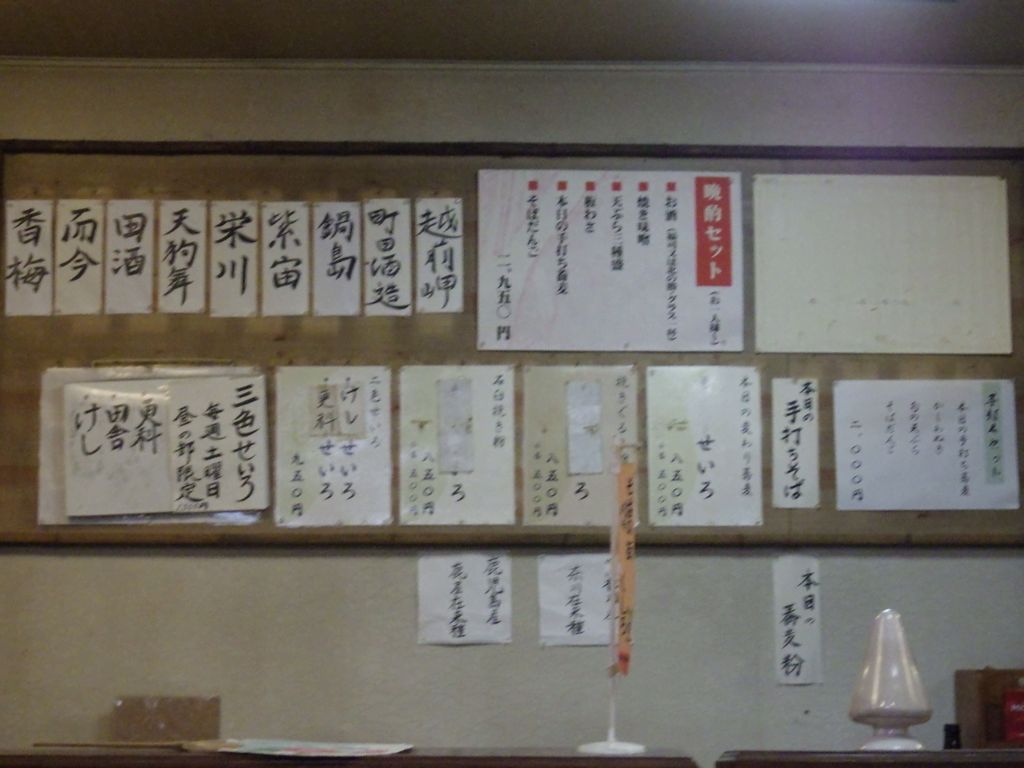 越前岬
町田酒造
鍋島
紫宙
栄川
天狗舞
田酒
而今
香梅
晩酌セット
■お酒
■焼き味噌
■天ぷら三種盛
■板わさ
■本日の手打ち蕎麦
■そばだんご
二、九五〇円
本日の手打ち蕎麦
そばだんご
二、〇〇〇円
本日の
手打ちそば
本日の変わり蕎麦
せいろ
八五〇円
挽きぐるみ
ろ
八五〇円
石臼挽き粉
ろ
八五〇円
二色せいろ
けし せいろ
更科 せいろ
九五〇円
三色せいろ
毎週土曜日
昼の部限定
更科
田舎
けし
本日の
蕎麦粉
在来種
鹿児島産
鹿屋在来種